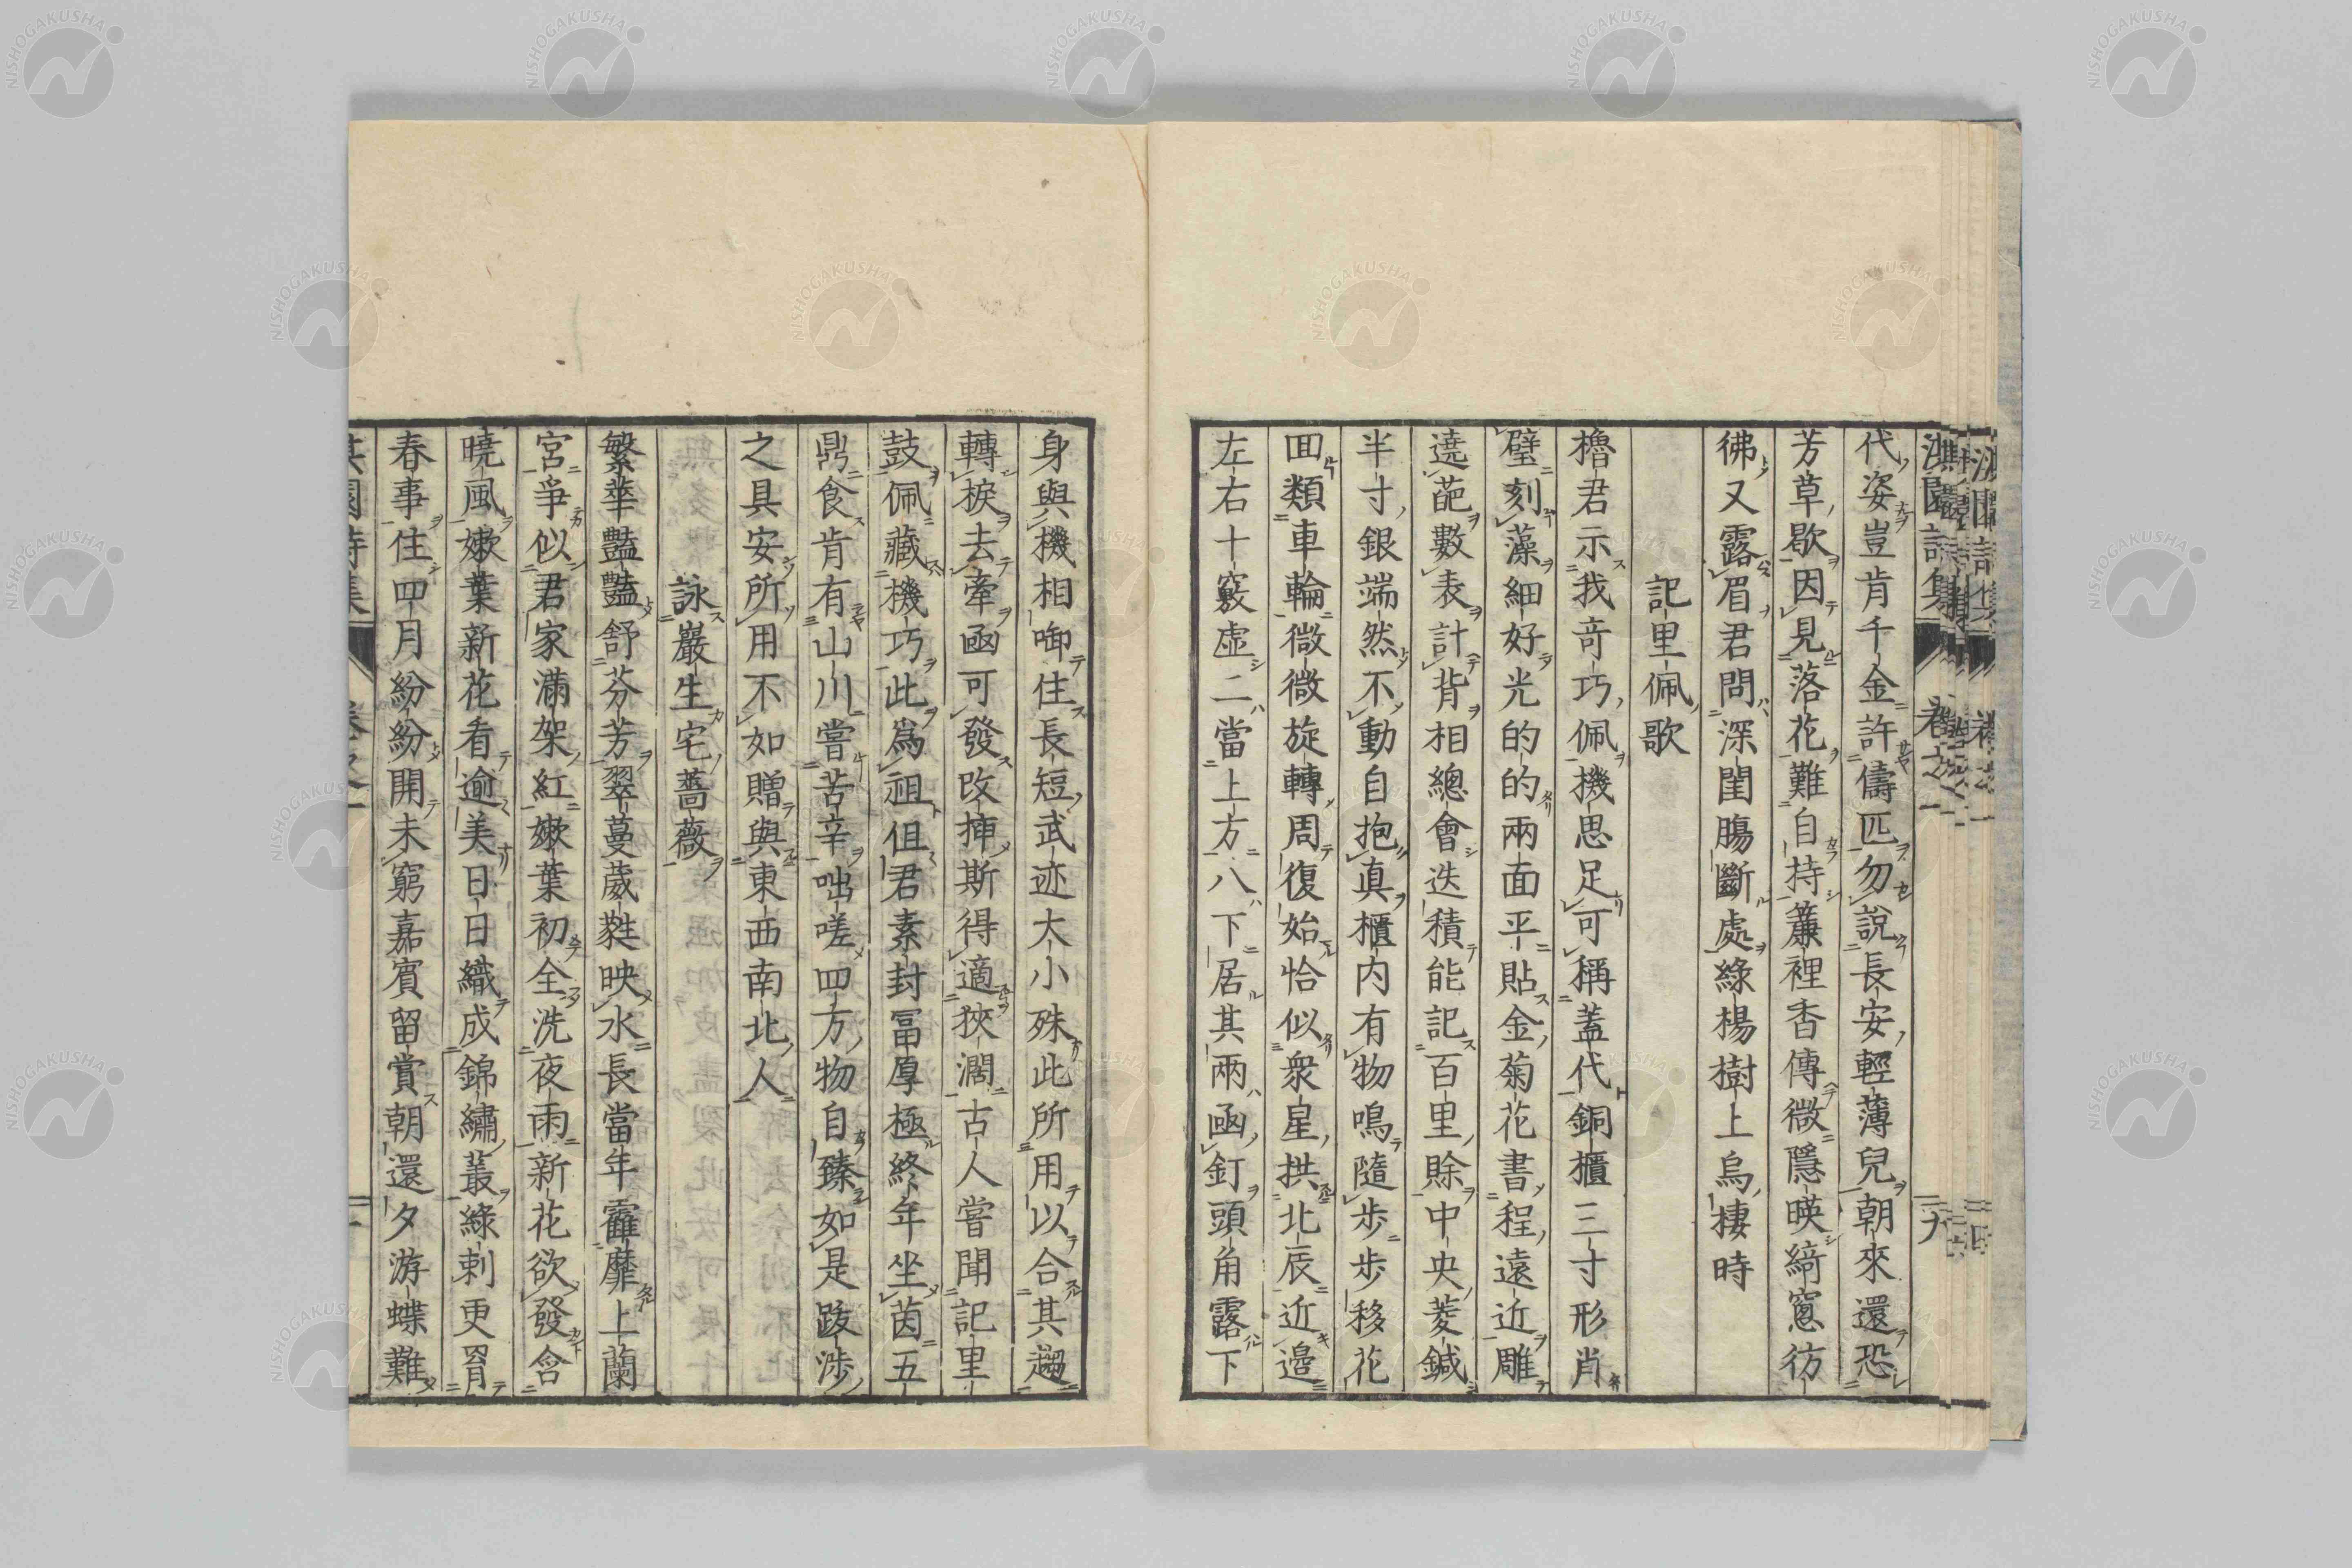 代姿豈肯千金許儔匹勿說長安輕薄兒朝來還恐
芳草歇因見落花難自持簾裡香傳微隱暎綺窓彷
彿又露眉君問深閨膓斷處綠楊樹上烏棲時
記里佩歌
櫓君示我竒巧佩機思足可稱蓋代銅櫃三寸形肖
璧刻藻細好光的的兩面平貼金菊花書程遠近雕
遶葩數表計背相總會迭積能記百里賒中央菱鍼
半寸銀端然不動自抱真櫃内有物鳴隨步步移花
囬類車輪微微旋轉周復始恰似衆星拱北辰近邉
左右十竅虚二當上方八下居其兩凾釘頭角露下
身與機相啣住長短武迹大小殊此所用以合其趨
轉捩去牽凾可發改揷斯得適狹濶古人嘗聞記里
鼓佩藏機巧此爲祖但君素封冨厚極終年坐茵五
鼎食肯有山川嘗苦辛咄嗟四方物自臻如是跋涉
之具安所用不如贈與東西南北人
詠巖生宅薔薇
繁華豔豔舒芬芳翠蔓葳蕤映水長當年靃靡上蘭
宮爭似君家滿架紅嫩葉初全洗夜雨新花欲發含
曉風嫩葉新花看逾美日日織成錦繡叢綠刺更罥
春事住四月紛紛開未窮嘉賓留賞朝還夕游蝶難
NISHOGAKUSHA